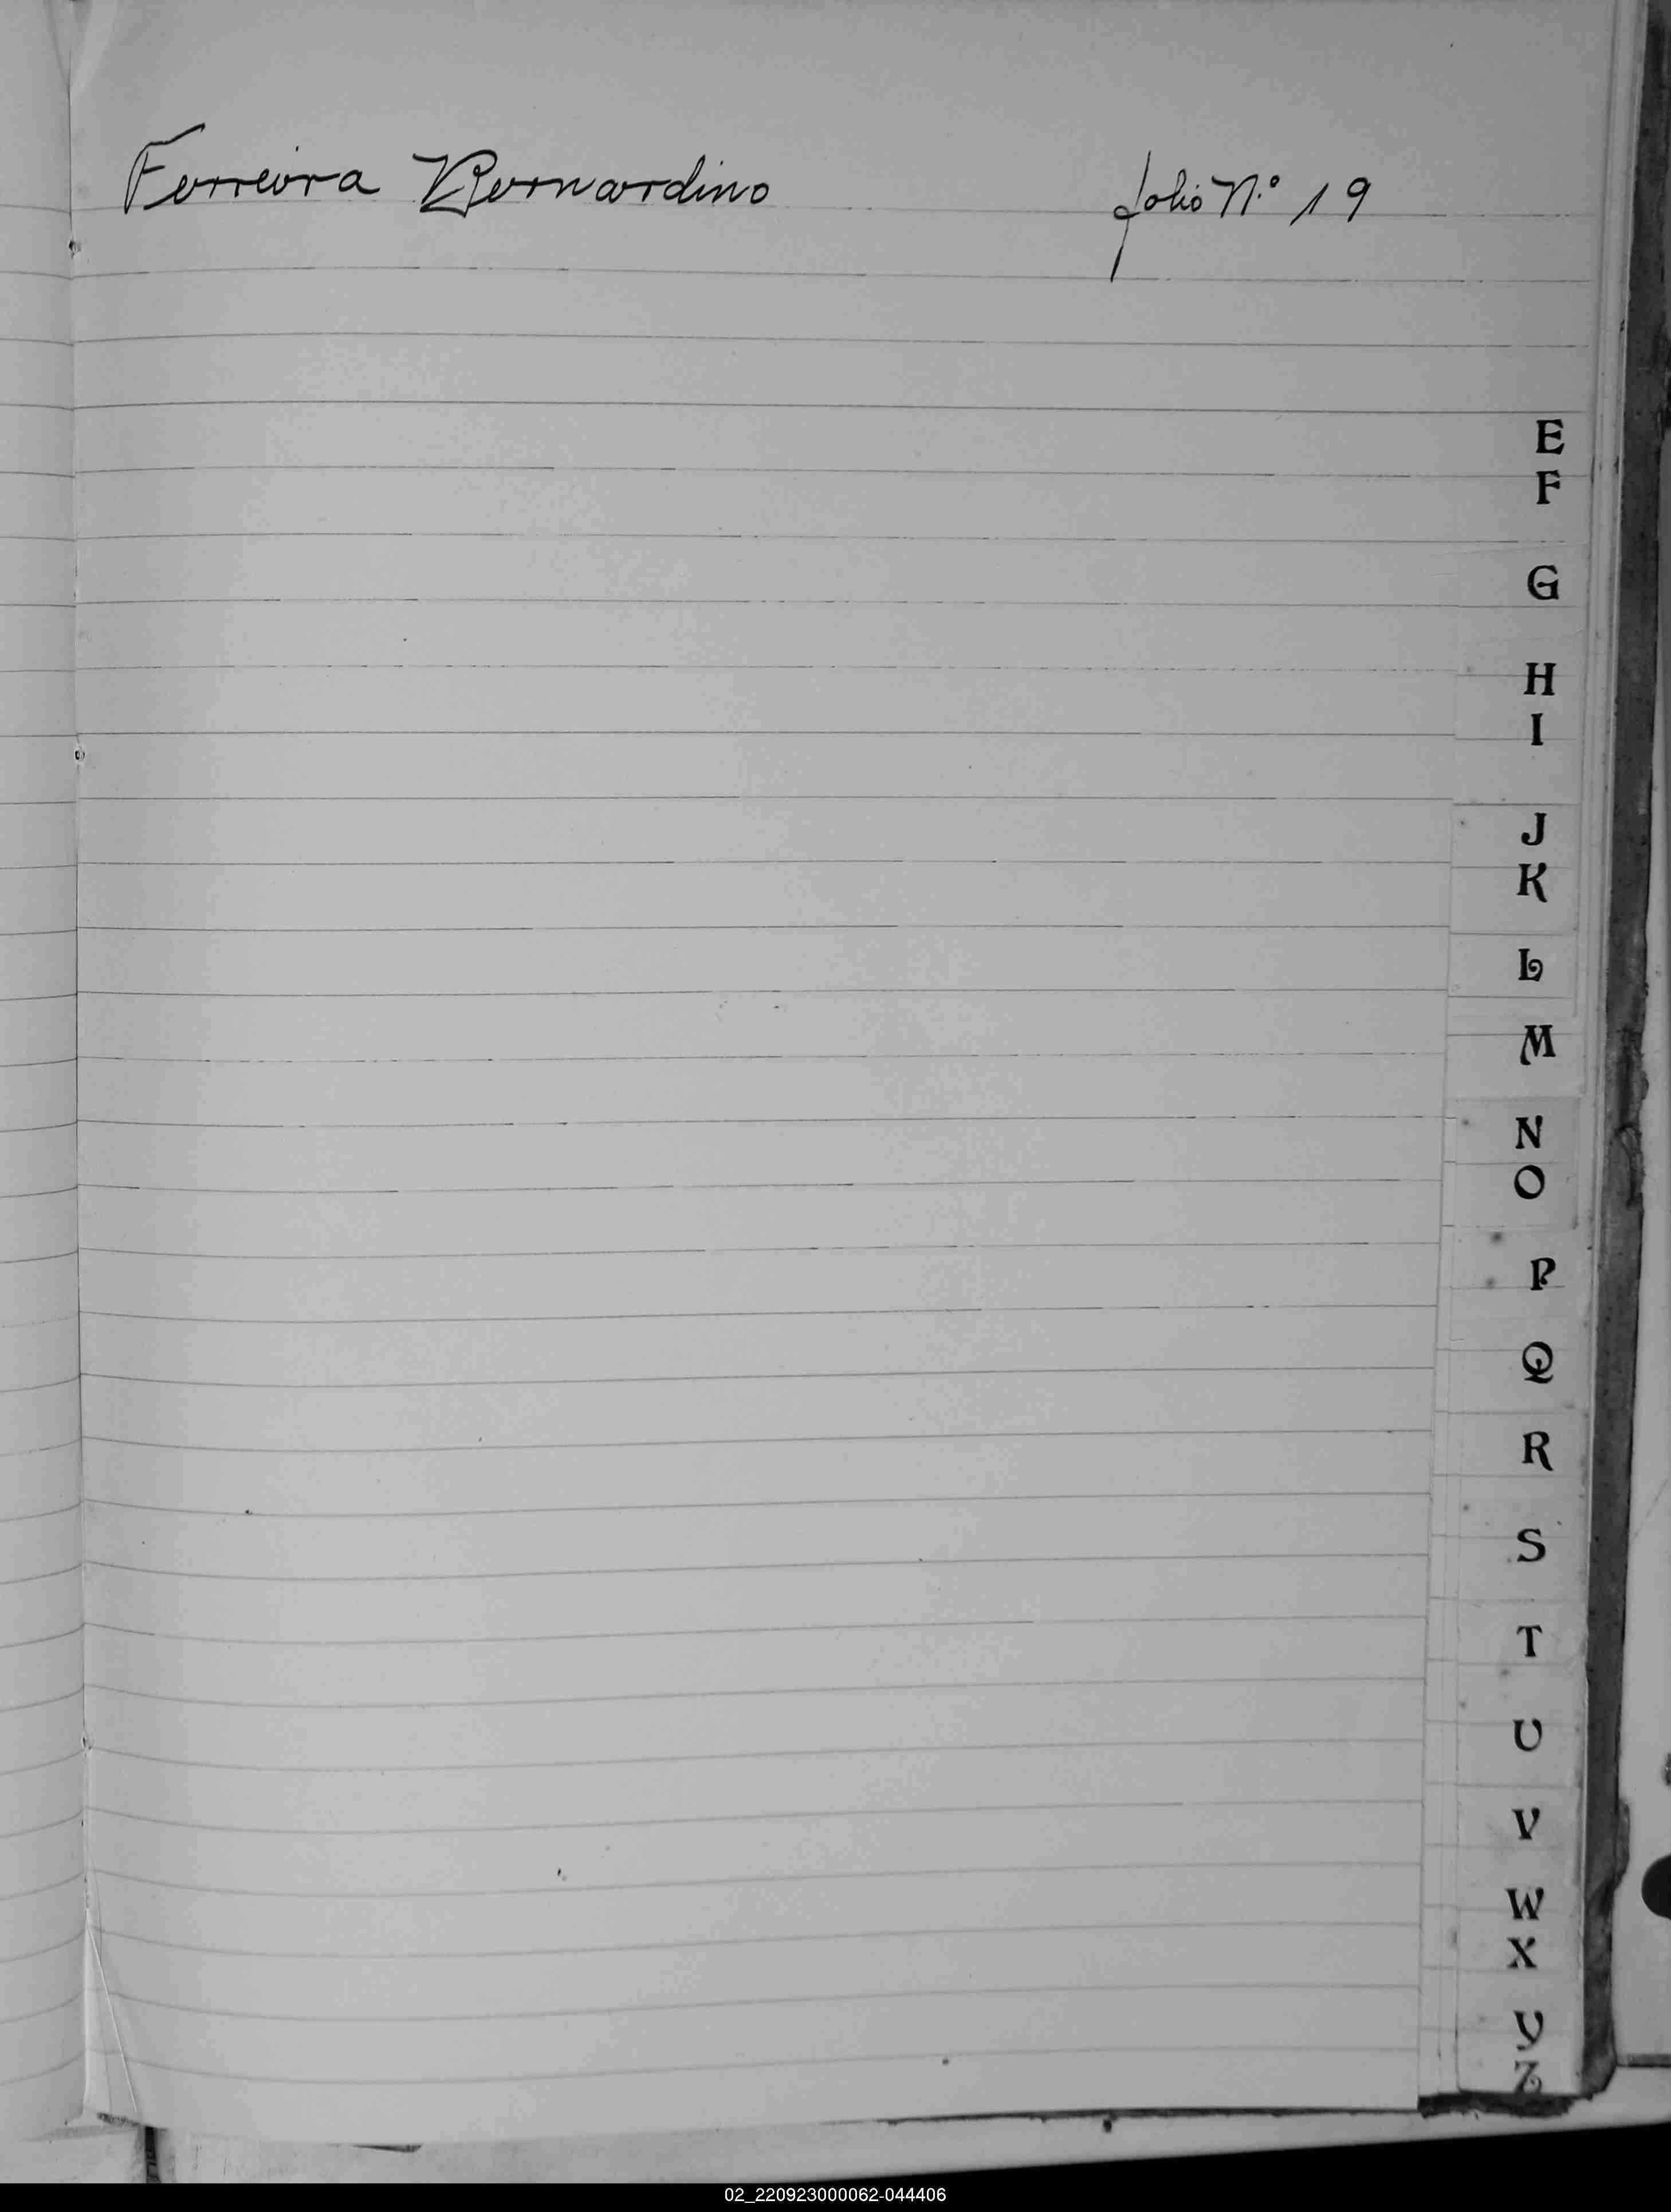 Ferreira Bernardino folio N.º 19
E
F
G
H
I
J
K
L
M
N
O
P
Q
R
S
T
U
V
W
X
Y
Z
02_220923000062-044406